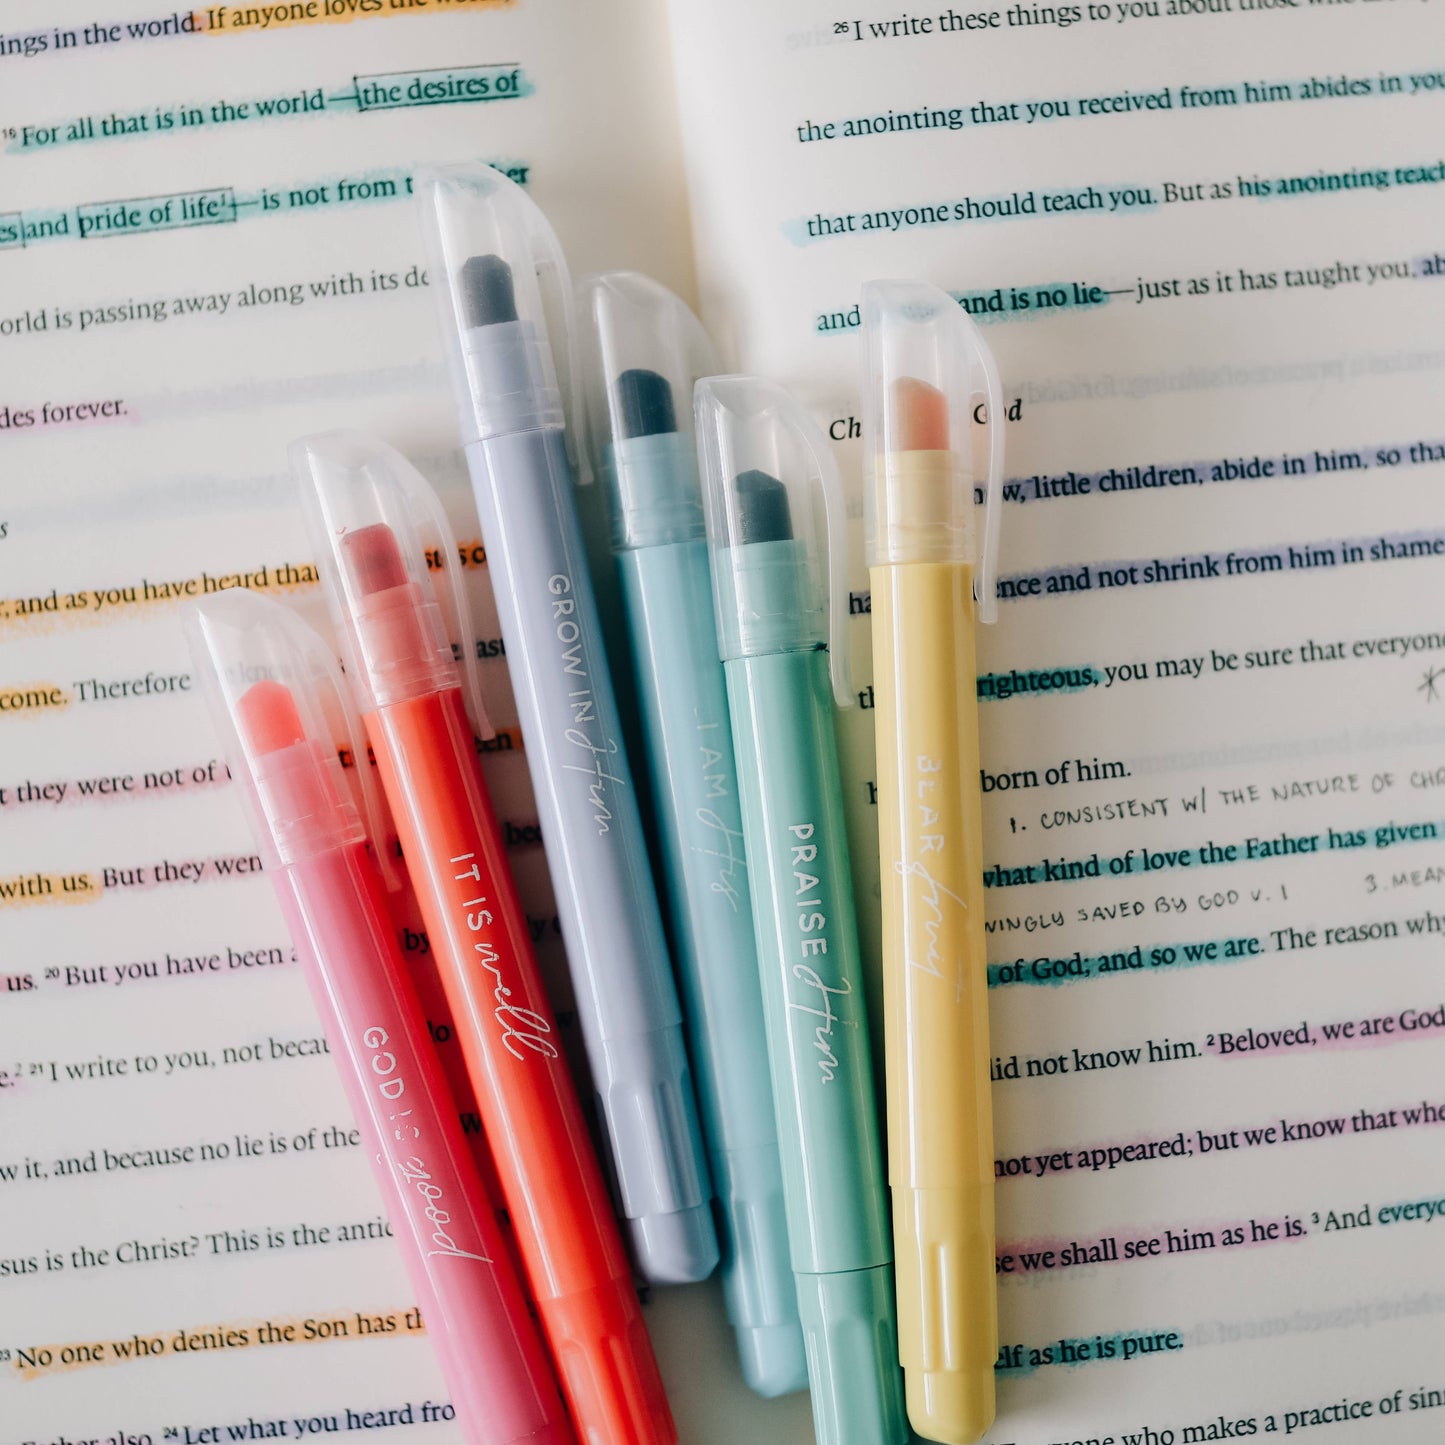 ings in the world. If anyone loves the world,
16 For all that is in the world—the desires of
es and pride of life1—is not from
orld is passing away along with its de
des forever.
s
r, and as you have heard that
come. Therefore
t they were not of
with us. But they wen
us. 20 But you have been a
e.2 21 I write to you, not becau
w it, and because no lie is of the
sus is the Christ? This is the antic
23 No one who denies the Son has th
Father also. 24 Let what you heard fro
GOD IS good
IT IS well
GROW IN Him
I AM His
PRAISE Him
BEAR fruit
26 I write these things to you about those who
the anointing that you received from him abides in you
that anyone should teach you. But as his anointing teach
and and is no lie—just as it has taught you, ab
Ch God
now, little children, abide in him, so tha
ha ence and not shrink from him in shame
th righteous, you may be sure that everyone
h born of him.
1. CONSISTENT W/ THE NATURE OF CHR
what kind of love the Father has given
WINGLY SAVED BY GOD V. 1 3. MEAN
of God; and so we are. The reason why
did not know him. 2 Beloved, we are God
not yet appeared; but we know that whe
se we shall see him as he is. 3 And everyo
elf as he is pure.
one who makes a practice of sinn